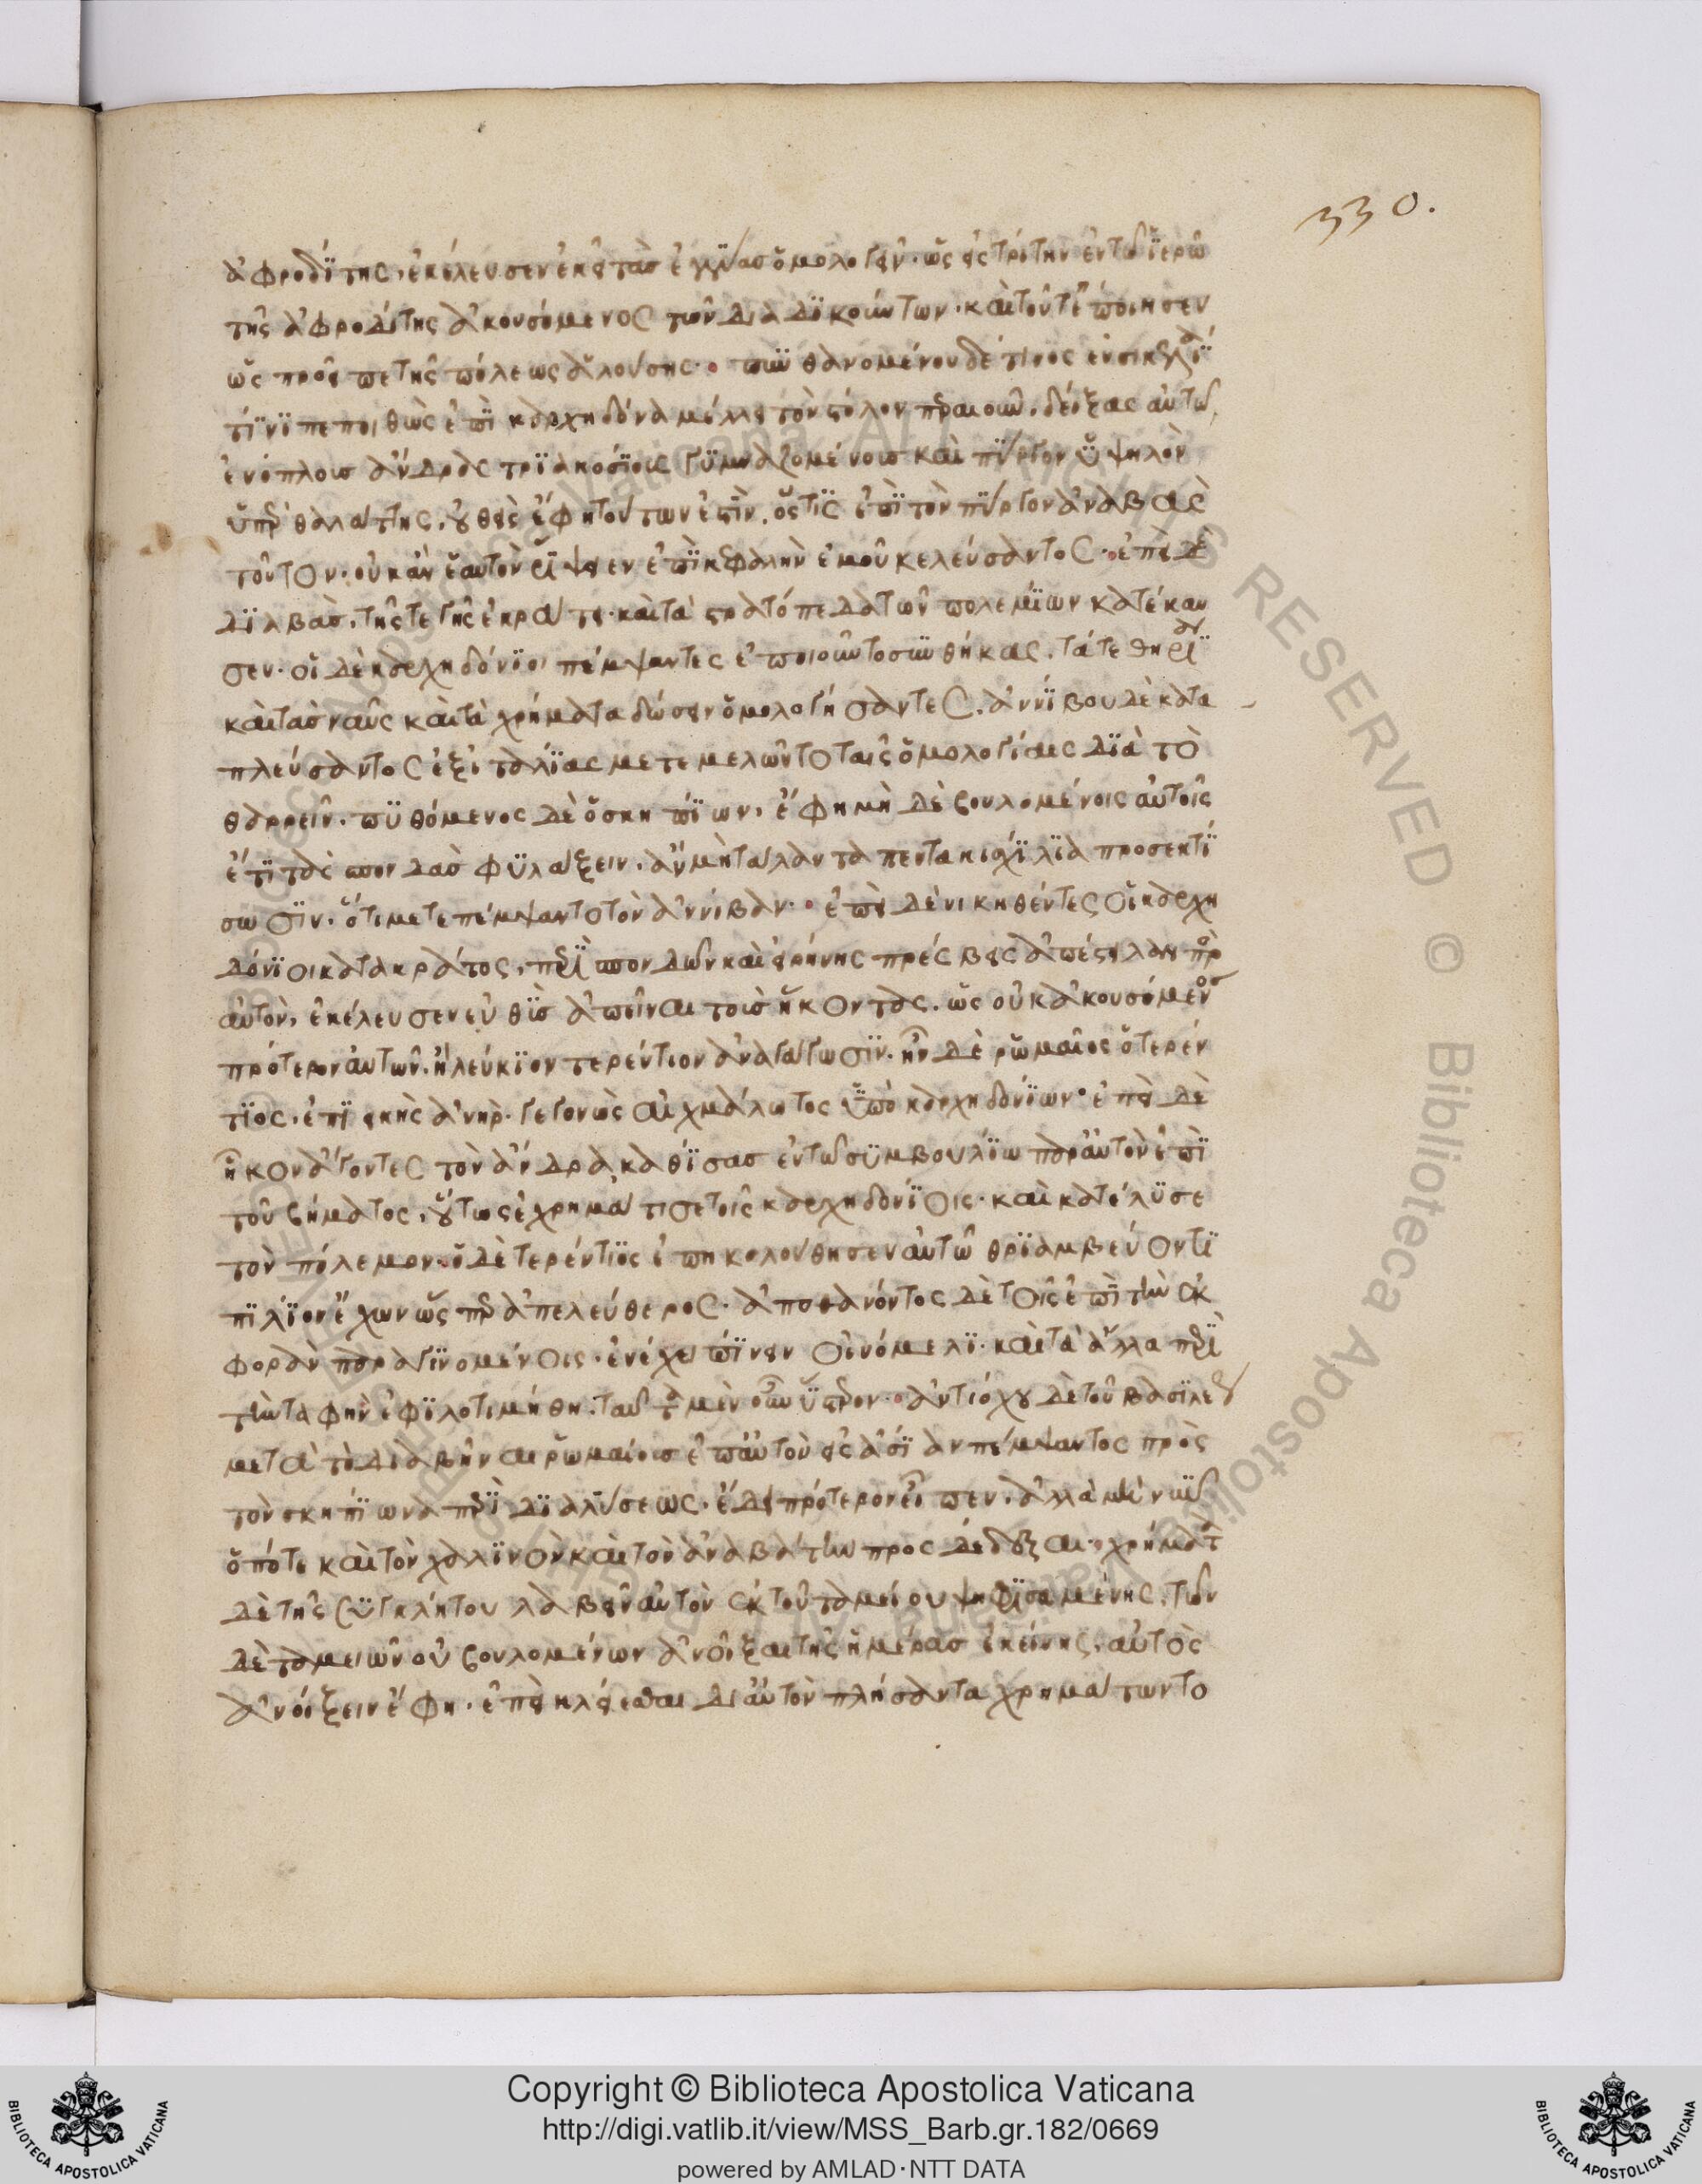 330.
ἀφροδίτης, ἐκέλευσεν ἐκεῖ τὰσ ἐγγύασ ὁμολογεῖν. ὡς εἰς τρίτην ἐν τῶ ἱερῶ
τῆς ἀφροδίτης ἀκουσόμενος τῶν διαδικούντων. καὶ τοῦτ' ἐποίησεν
ὡς προεῖπε τῆς πόλεως ἁλούσης. πυνθανομένου δέ τινος ἐν σικελία
τίνι πεποιθὼς ἐπὶ καρχηδόνα μέλλει τὸν στόλον περαιοῦν, δείξας αὐτῶ
ἐνόπλοισ ἄνδρας τριακοσίοις γυμναζομένοισ καὶ πύργον ὑψηλὸν
ὑπὲρ θαλάττης, οὐθεὶς ἔφη τούτων ἐστὶν, ὅστις ἐπὶ τὸν πύργον ἀναβὰς
τοῦτον. οὐκ ἂν ἑαυτὸν ῥίψειεν ἐπὶ κεφαλὴν ἐμοῦ κελεύσαντος. ἐπεὶ δὲ
διαβὰσ, τῆς τε γῆς ἐκράτει. καὶ τὰ στρατόπεδα τῶν πολεμίων κατέκαυ
σεν. οἱ δὲ καρχηδόνιοι πέμψαντες ἐποιοῦντο συνθήκας. τά τε θηρία
καὶ τὰσ ναῦς καὶ τὰ χρήματα δώσειν ὁμολογήσαντες. ἀννίβου δὲ κατα
πλεύσαντος ἐξ ἰταλίας μετεμελῶντο ταῖς ὁμολογίαις διὰ τὸ
θαρρεῖν. πυθόμενος δὲ ὁ σκηπίων, ἔφη μὴ δὲ βουλομένοις αὐτοῖς
ἔτι τὰς σπονδὰσ φυλάξειν. ἂν μὴ τάλαντα πεντακισχίλια προσεκτί
σωσιν. ὅτι μετεπέμψαντο τὸν ἀννίβαν. ἐπεὶ δὲ νικηθέντες οἱ καρχη
δόνιοι κατακράτος, περὶ σπονδῶν καὶ εἰρήνης πρέσβεις ἀπέστειλαν πρὸ
αὐτὸν, ἐκέλευσεν εὐθὺσ ἀπιέναι τοὺσ ἥκοντας. ὡς οὐκ ἀκουσόμενοσ
πρότερον αὐτῶν. ἢ λεύκιον τερέντιον ἀναγάγωσιν. ἦν δὲ ῥωμαῖος ὁ τερέν
τιος. ἐπιεικὴς ἀνὴρ. γεγονὼς αἰχμάλωτος ὑπὸ καρχηδονίων. ἐπεὶ δὲ
ἧκον ἄγοντες τὸν ἄνδρα καθίσασ ἐν τῶ συμβουλίω παρ' αὐτὸν ἐπὶ
τοῦ βήματος, οὕτως ἐχρημάτισε τοῖς καρχηδονίοις. καὶ κατέλυσε
τὸν πόλεμον. ὁ δὲ τερέντιος ἐπηκολούθησεν αὐτῶ θριαμβεύοντι
πιλίον ἔχων ὥσπερ ἀπελεύθερος. ἀποθανόντος δὲ τοῖς ἐπὶ τὴν ἐκ
φορὰν παραγινομένοις. ἐνέχει πίνειν οἰνόμελι. καὶ τὰ ἄλλα περὶ
τὴν ταφὴν ἐφιλοτιμήθη. ταῦτα μὲν οὖν ὕστερον. ἀντιόχου δὲ τοῦ βασιλέως
μετὰ τὸ διαβῆναι ῥωμαίουσ ἐπ' αὐτὸν εἰς ἀσίαν πέμψαντος πρὸς
τὸν σκηπίωνα περὶ διαλύσεως. ἔδει πρότερον εἶπεν. ἀλλὰ μὴ νῦν
ὁπότε καὶ τὸν χαλινὸν καὶ τὸν ἀναβάτην προσδέδεξαι. χρήματα
δὲ τῆς συγκλήτου λαβεῖν αὐτὸν ἐκ τοῦ ταμείου ψηφισαμένης. τῶν
δὲ ταμειῶν οὐ βουλομένων ἀνοῖξαι τῆς ἡμέρασ ἐκείνης, αὐτὸς
ἀνοίξειν ἔφη. ἐπεὶ κλείεσθαι δι' αὐτὸν πλήσαντα χρημάτων τὸ
Copyright © Biblioteca Apostolica Vaticana
http://digi.vatlib.it/view/MSS_Barb.gr.182/0669
powered by AMLAD·NTT DATA